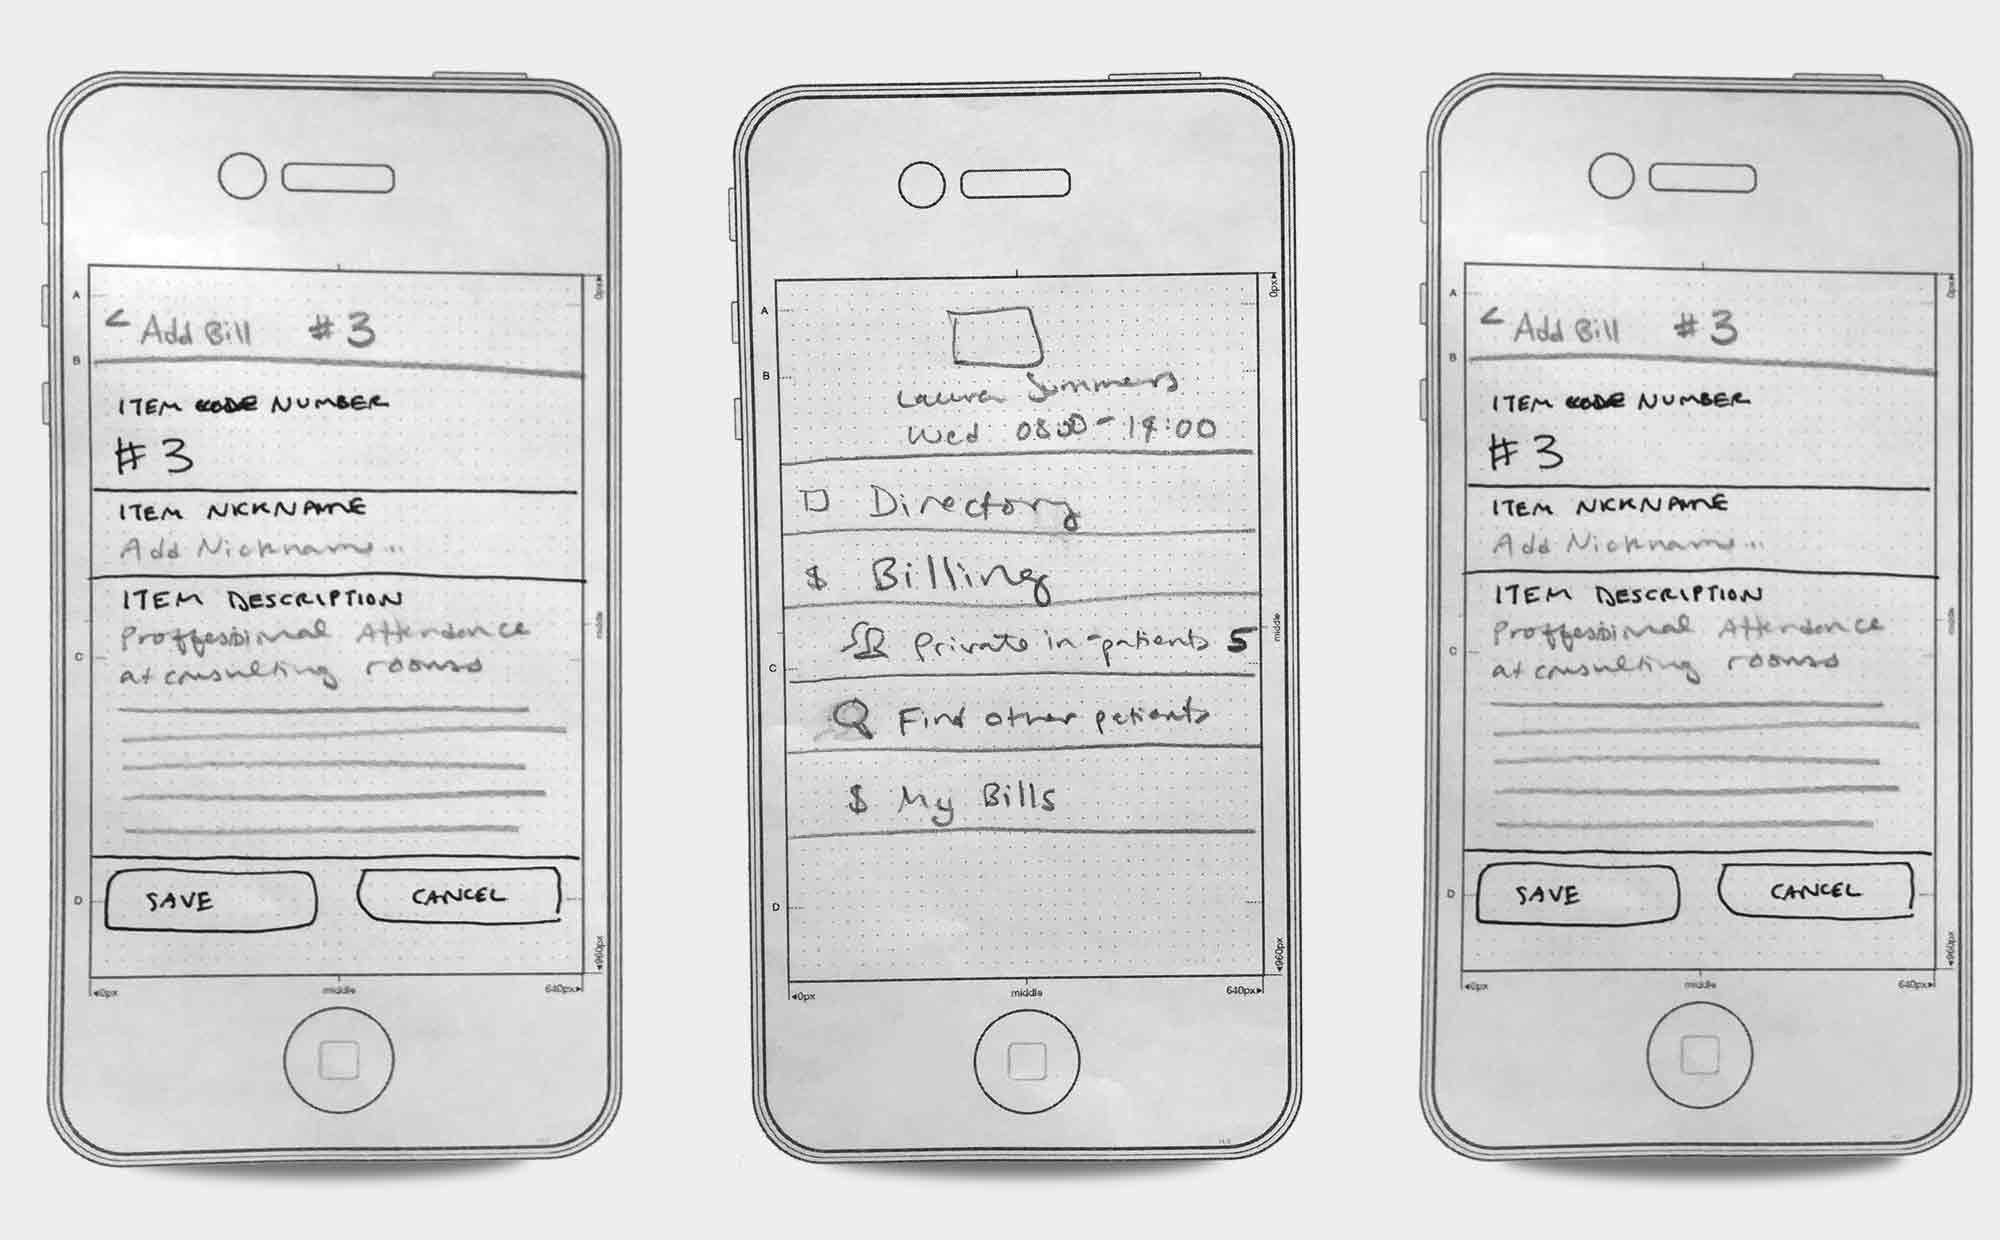 A
B
C
D
0px
middle
960px
0px
middle
640px
< Add Bill #3
ITEM CODE NUMBER
#3
ITEM NICKNAME
Add Nickname...
ITEM DESCRIPTION
Proffessional Attendance
at consulting rooms
SAVE
CANCEL
A
B
C
D
0px
middle
960px
0px
middle
640px
Laura Summers
Wed 0800 - 19:00
Directory
$ Billing
Private in-patients 5
Find other patients
$ My Bills
A
B
C
D
0px
middle
960px
0px
middle
640px
< Add Bill #3
ITEM CODE NUMBER
#3
ITEM NICKNAME
Add Nickname...
ITEM DESCRIPTION
Proffessional Attendance
at consulting rooms
SAVE
CANCEL